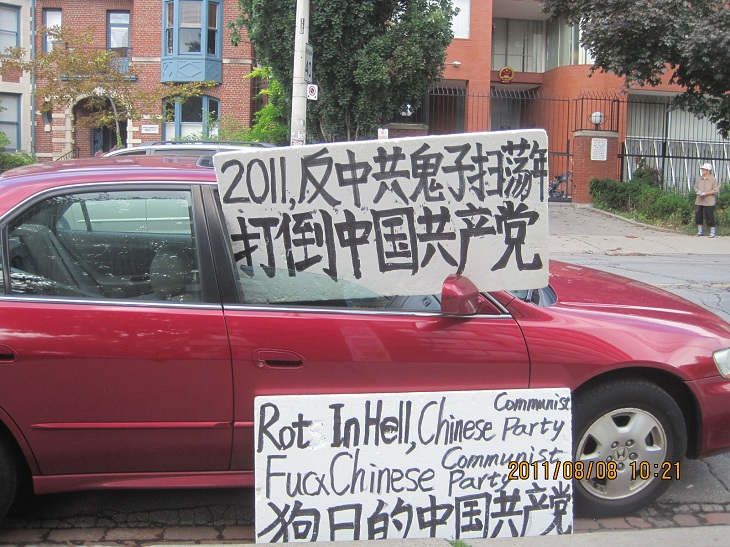 2011,反中共鬼子扫荡年
打倒中国共产党
Rot In Hell, Chinese Communist Party
Fucx Chinese Communist Party
狗日的中国共产党
2011/08/08 10:21